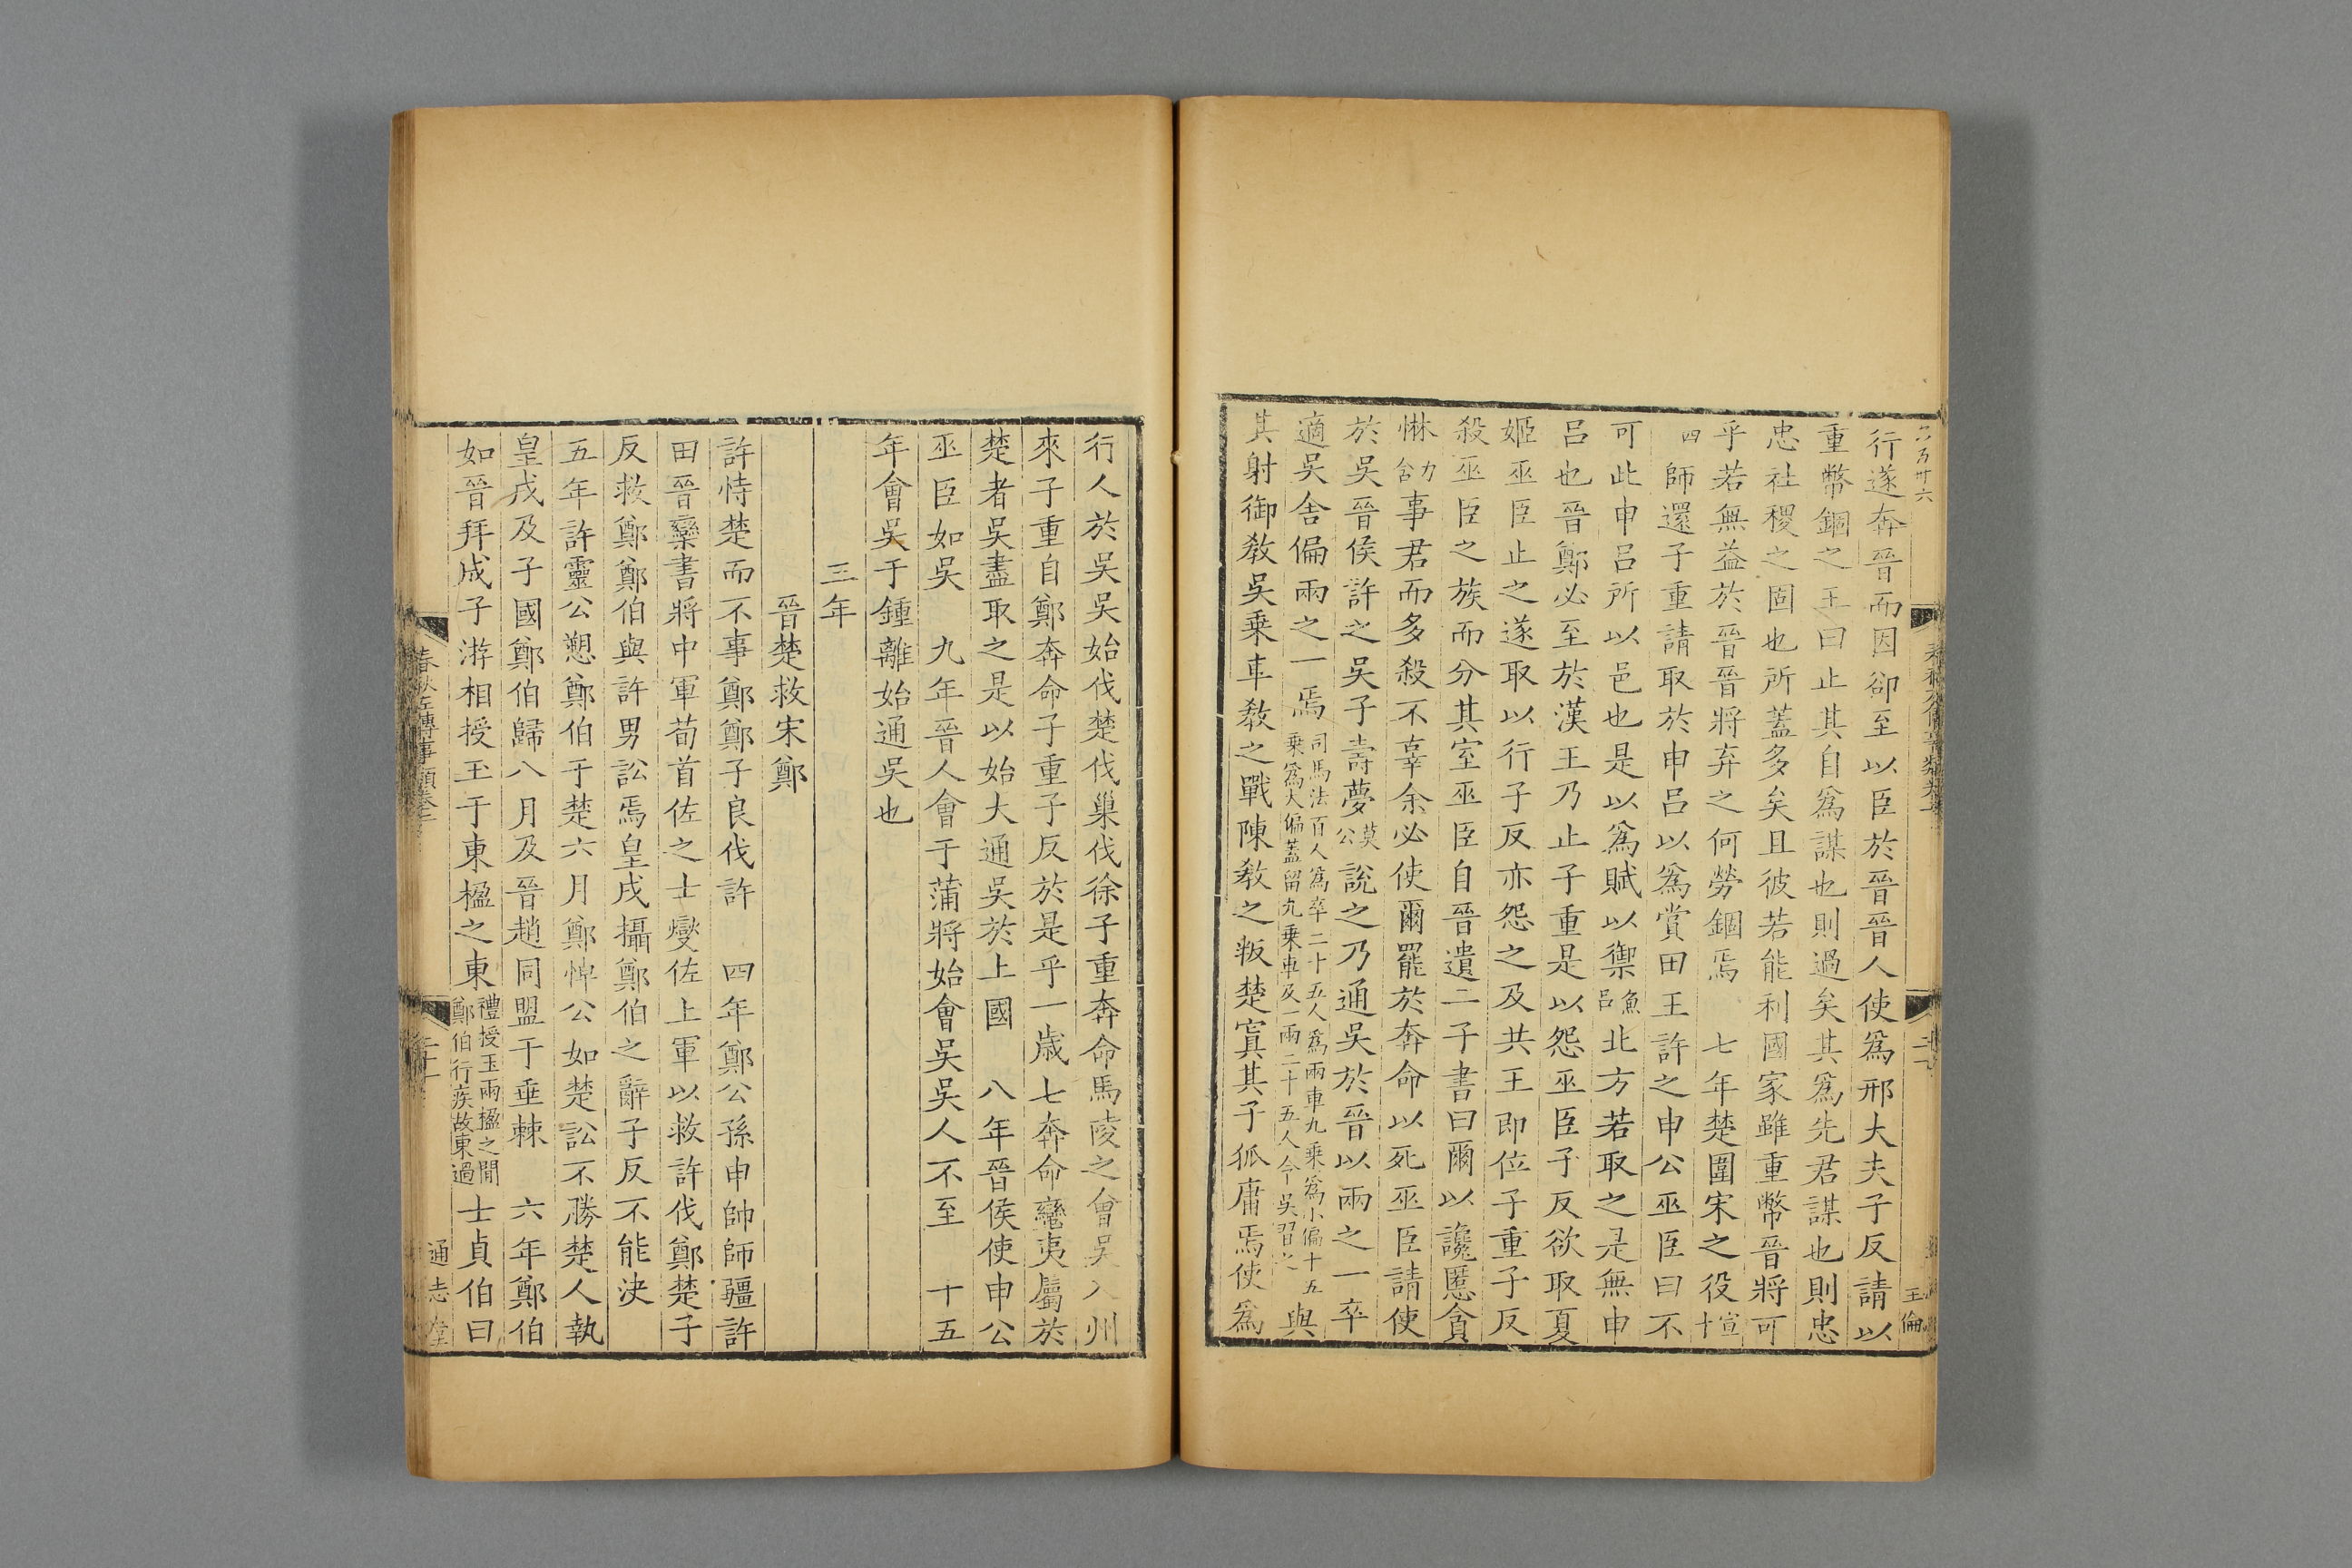 行遂奔晉而因郤至以臣於晉晉人使爲邢大夫子反請以
重幣錮之王曰止其自爲謀也則過矣其爲先君謀也則忠
忠社稷之固也所蓋多矣且彼若能利國家雖重幣晉將可
乎若無益於晉晉將弃之何勞錮焉　七年楚圍宋之役宣十
四師還子重請取於申吕以爲賞田王許之申公巫臣曰不
可此申吕所以邑也是以爲賦以禦魚吕北方若取之是無申
吕也晉鄭必至於漢王乃止子重是以怨巫臣子反欲取夏
姬巫臣止之遂取以行子反亦怨之及共王即位子重子反
殺巫臣之族而分其室巫臣自晉遺二子書曰爾以讒慝貪
惏力含事君而多殺不辜余必使爾罷於奔命以死巫臣請使
於吳晉侯許之吳子壽夢莫公說之乃通吳於晉以兩之一卒
適吳舍偏兩之一焉司馬法百人爲卒二十五人爲兩車九乗爲小偏十五乗爲大偏蓋留九乗車及一兩二十五人令吳習之與
其射御敎吳乗車敎之戰陳敎之叛楚寘其子狐庸焉使爲
王倫
行人於吳吳始伐楚伐巢伐徐子重奔命馬陵之會吳入州
來子重自鄭奔命子重子反於是乎一歲七奔命蠻夷屬於
楚者吳盡取之是以始大通吳於上國　八年晉侯使申公
巫臣如吳　九年晉人會于蒲將始會吳吳人不至　十五
年會吳于鍾離始通吳也
三年
晉楚救宋鄭
許恃楚而不事鄭鄭子良伐許　四年鄭公孫申帥師疆許
田晉欒書將中軍荀首佐之士燮佐上軍以救許伐鄭楚子
反救鄭鄭伯與許男訟焉皇戌攝鄭伯之辭子反不能決
五年許靈公愬鄭伯于楚六月鄭悼公如楚訟不勝楚人執
皇戌及子國鄭伯歸八月及晉趙同盟于垂棘　六年鄭伯
如晉拜成子游相授玉于東楹之東禮授玉兩楹之間鄭伯行疾故東過士貞伯曰
春秋左傳事類卷二
通志堂